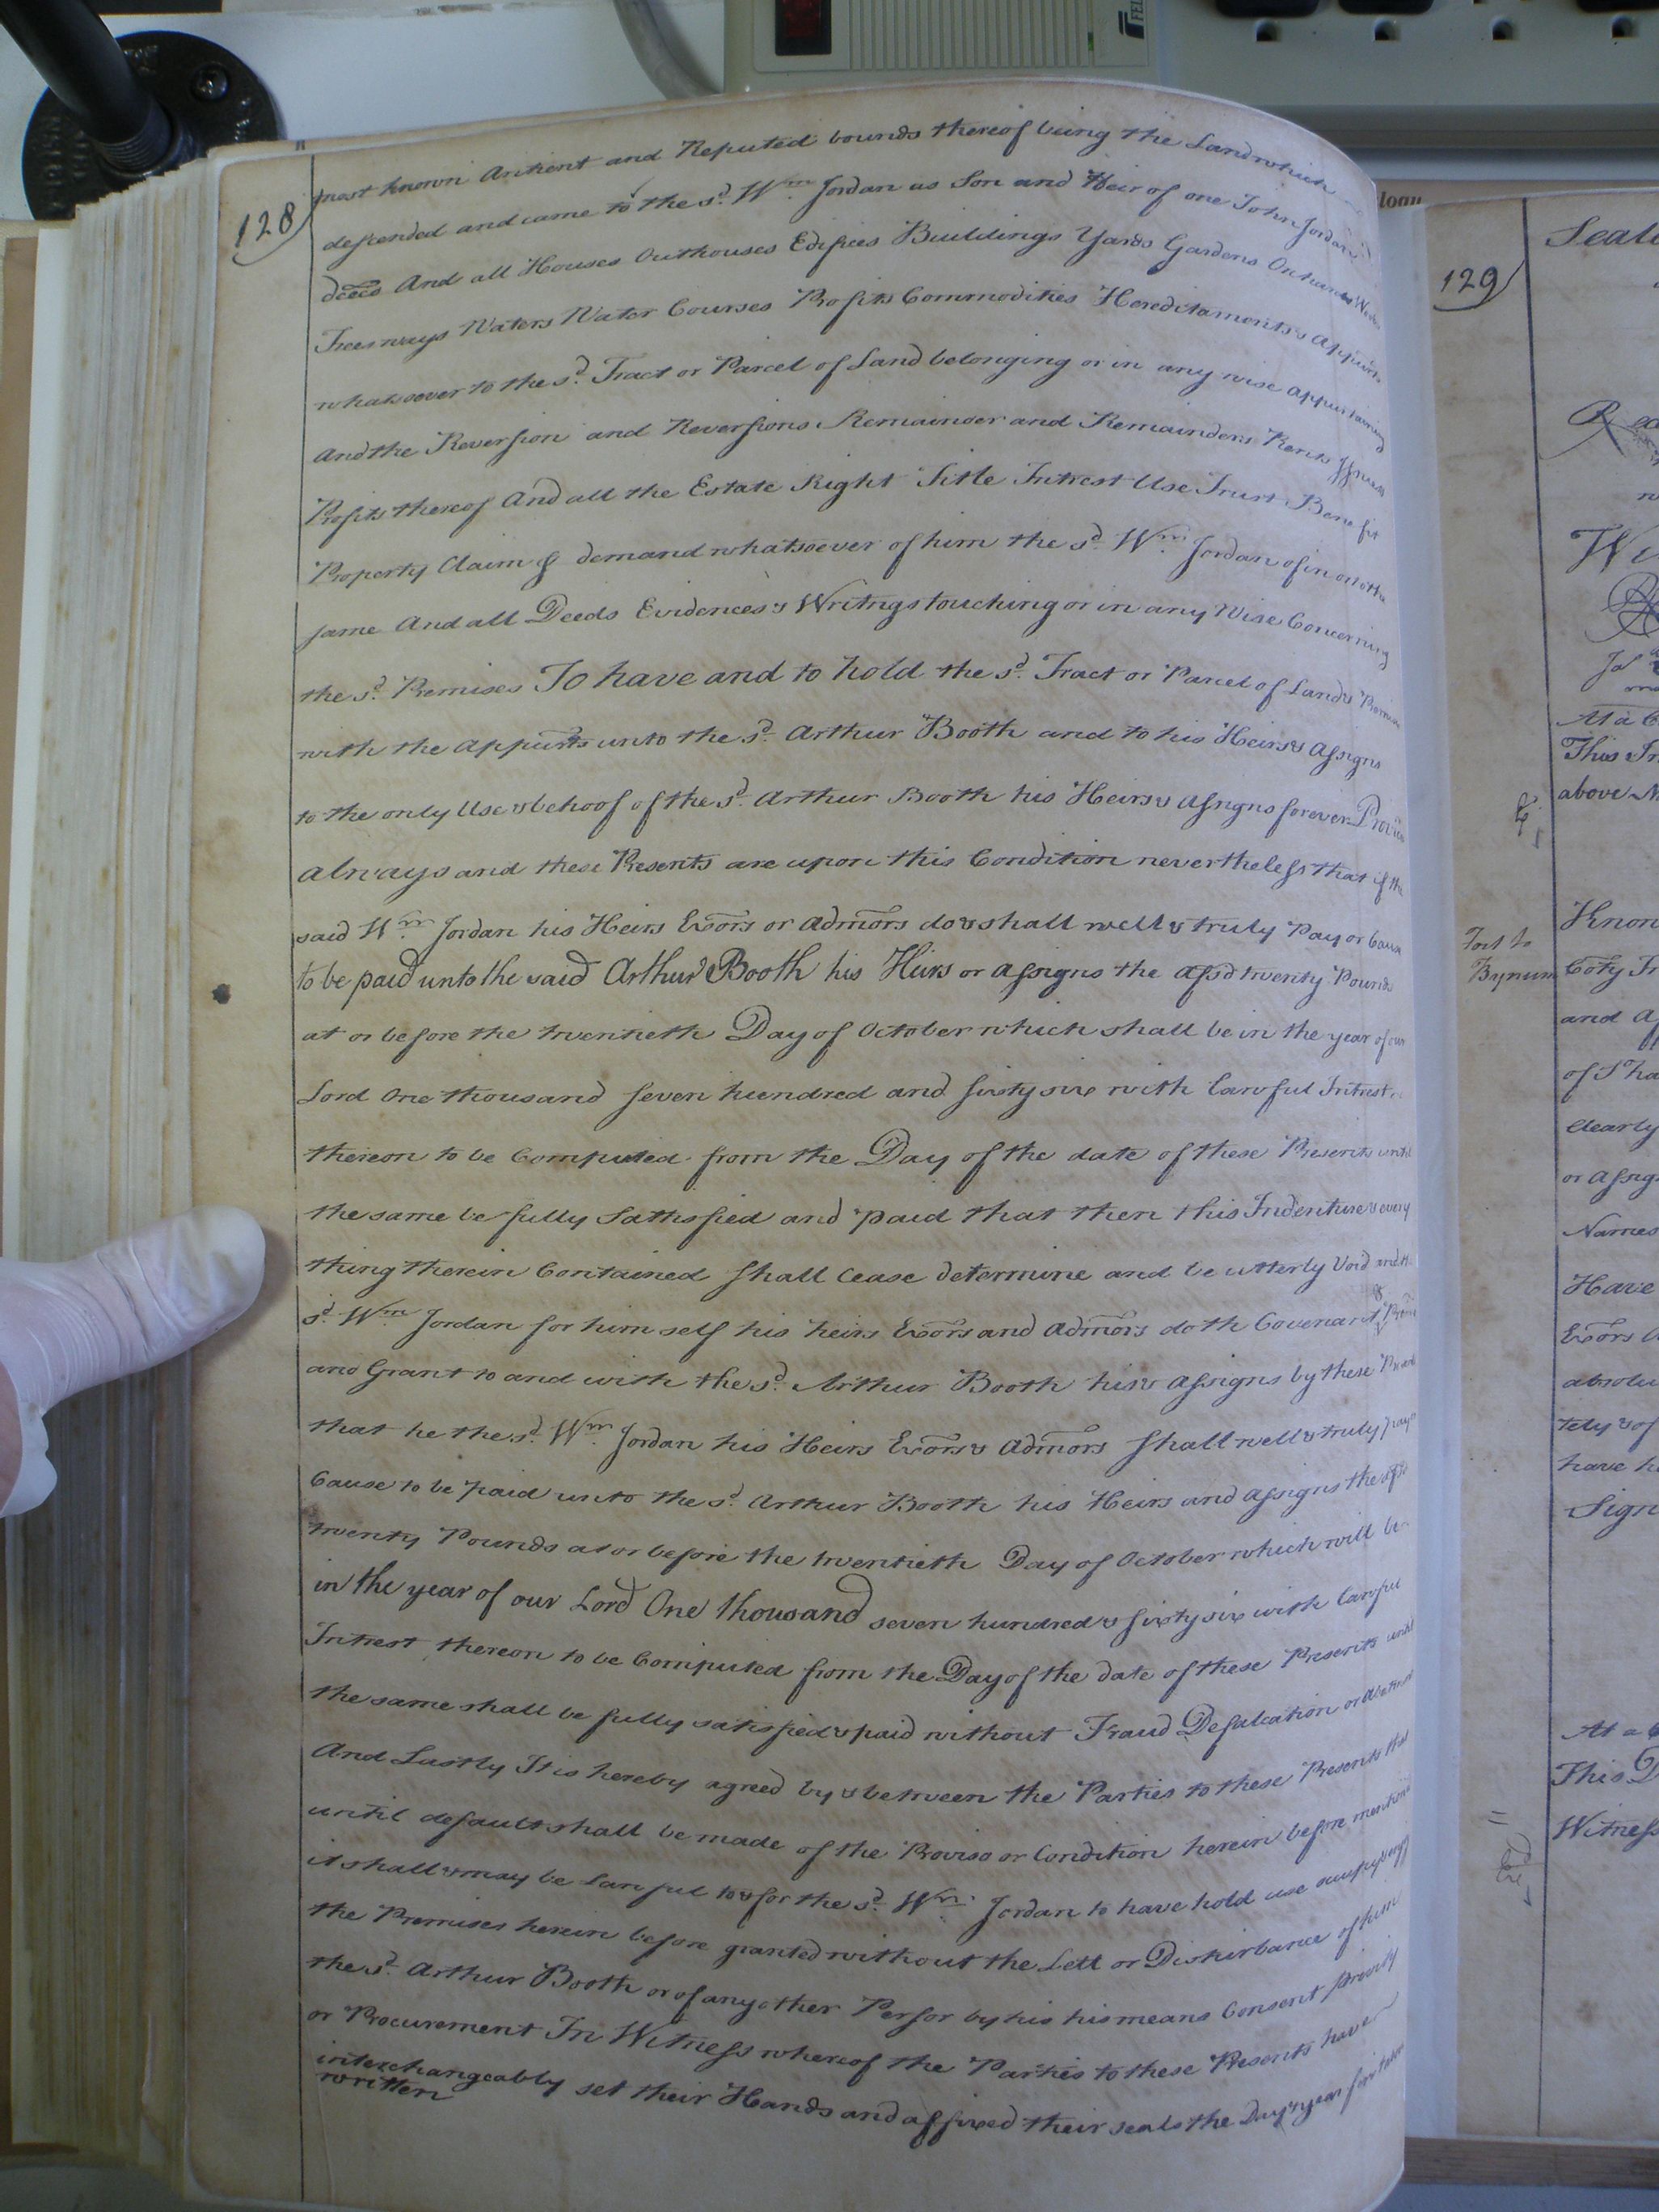 128
most known Antient and Reputed bounds thereof being the Land which
descended and came to the sd. Wm. Jordan as Son and Heir of one John Jordan
deced And all Houses Outhouses Edifices Buildings Yards Gardens Orchards Woods
Trees ways Waters Water Courses Profits Commodities Hereditaments & Appurts
whatsoever to the sd. Tract or Parcel of Land belonging or in any wise appurtaining
And the Reversion and Reversions Remainder and Remainders Rents Issues
Profits thereof And all the Estate Right Title Intrest Use Trust Benefit
Property Claim & demand whatsoever of him the sd. Wm. Jordan of in or to the
same And all Deeds Evidences & Writngs touching or in any Wise Concerning
the sd. Premises To have and to hold the sd. Tract or Parcel of Land &
with the Appurts unto the sd. Arthur Booth and to his Heirs & Assigns
to the only Use & behoof of the sd. Arthur Booth his Heirs & Assigns forever
always and these Presents are upon this Condition nevertheless that if the
said Wm. Jordan his Heirs Exors or Admors do & shall well & truly Pay or Cause
to be paid unto the said Arthur Booth his Heirs or Assigns the afsd twenty Pounds
at or before the twentieth Day of October which shall be in the year of our
Lord One thousand seven hundred and sixty six with Lawful Intrest
thereon to be Computed from the Day of the date of these Presents until
the same be fully Sattisfied and paid that then this Indenture & every
thing therein Contained shall Cease determine and be utterly Void and the
sd. Wm. Jordan for him self his heirs Exors and Admors doth Covenant &
and Grant to and with the sd. Arthur Booth his & Assigns by these
that he the sd. Wm. Jordan his Heirs Exors & Admors shall well & truly pay
Cause to be paid unto the sd. Arthur Booth his Heirs and Assigns the afsd
twenty Pounds at or before the twentieth Day of October which will be
in the year of our Lord One thousand seven hundred & sixty six with Lawful
Intrest thereon to be Computed from the Day of the date of these Presents until
the same shall be fully satisfied & paid without Fraud Defalcation or
And Lastly It is hereby agreed by & between the Parties to these Presents that
until default shall be made of the Proviso or Condition herein before mentioned
it shall & may be Lawful to & for the sd. Wm. Jordan to have hold use
the Premises herein before granted without the Lett or Disturbance of him
the sd. Arthur Booth or of any other Person by his his means Consent Privity
or Procurement In Witness whereof the Parties to these Presents have
interchangeably set their Hands and affixed their seals the Day & year
written
loan
FEL
129
Seale
Wi
At a
This In
above
Tost to
Bynum
Know
Coty
and
of
clearly
or Assig
Names
Have
Exors
absolu
tely & of
have
Sign
At a
This
Witness